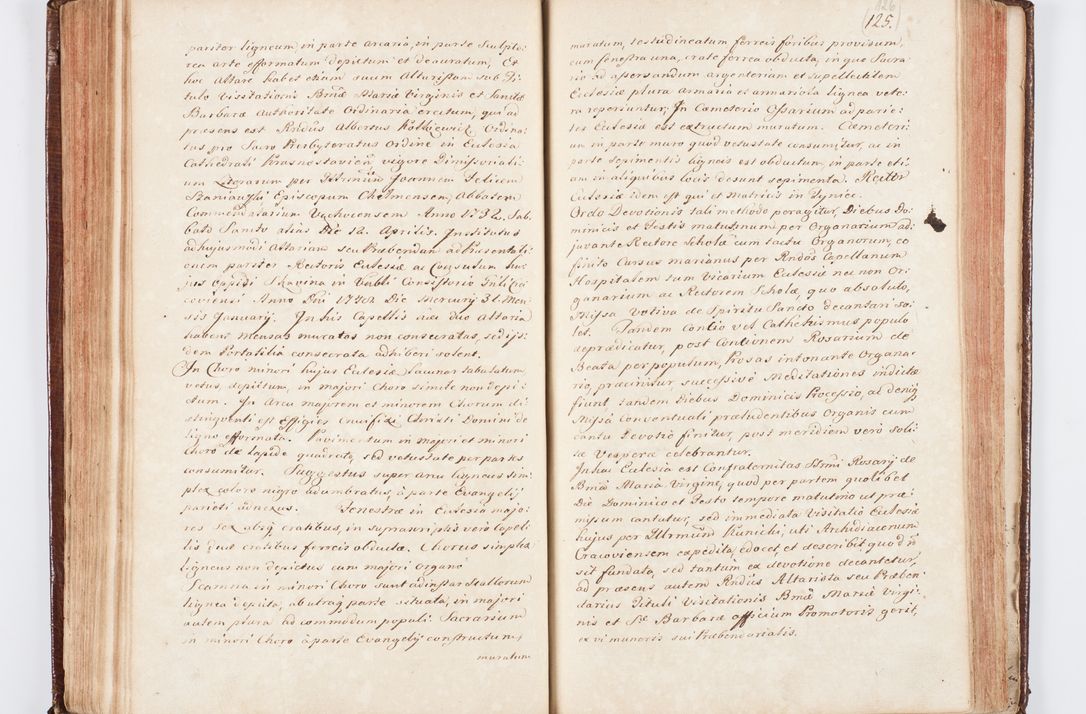 pariter ligneum, in parte arcaria, in parte sculpto:
rea arte efformatum depictum et deauratum, Et
hoc Altare habet etiam suum Altaristam sub Ti:
tulo Visitationis Bmæ Mariæ Virginis et Sanctæ
Barbaræ Authoritate Ordinaria erectum, qui ad
præsens est Rndus Albertus Ordina:
tus pro Sacro Præsbyteratus Ordine in Ecclesia
Cathedrali Krasnostavien vigore Dimissoriali:
um Literarum per Illrmum Joannem Felicem
Szaniawski Episcopum Chelmensem, Abbatem
Commendatarium Vąchocensem Anno 1732. Sab:
bato Sancto alias Die 12. Aprilis. Institutus
ad hujusmodi Altariam seu Præbendam ad Præsentati:
onem pariter Rectoris Ecclesiæ ac Consulum hu:
jus Oppidi Skavina in Consistorio Grli Cra:
coviensi Anno Dni Die Mercurij 31. Men:
sis Januarij. In his Capellis duo Altaria
habent Mensas muratas non consecratas, sed ijs:
dem Portatilia consecrata adhiberi solent.
In Choro minori hujus Ecclesiæ Lacunar tabulatum
vetus, depictum, in majori Choro simile non depi:
ctum. In Arcu majorem et minorem Chorum di:
stinguenti est Effigies Crucifixi Christi Domini de
ligno efformata. Pavimentum in majori et minori
Choro de lapide quadrato, sed vetustate per partes
consumitur. Suggestus super arcu ligneus sim:
plex colore nigro adumbratus, à parte Evangelij
parieti annexus. Fenestræ in Ecclesia majo:
res sex absq cratibus, in suprascriptis verò Capel:
lis duæ cratibus ferreis obductæ. Chorus simplex
ligneus non depictus cum majori Organo
Scamna in minori Choro sunt ad instar Stallorum
lignea depicta, ab utraq parte situata, in majori
autem plura ad commodum populi. Sacrarium
in minori Choro à parte Evangelij constructum,
muratum
126
125.
muratum, testudineatum ferreis foribus provisum,
cum fenestra una, crate ferrea obducta, in quo Sacra:
rio ad asservandum argenteriam et supellectilem
Ecclesiæ plura armaria et armariola lignea vete:
ra reperiuntur; In Cæmeterio Ossarium ad parie:
tes Ecclesiæ est extructum muratum. Cæmeteri:
um in parte muro quod vetustate consumitur, ac in
parte sepimentis ligneis est obductum, in parte eti:
am in aliquibus locis desunt sepimenta. Rector
Ecclesiæ idem est qui et Matricis in Tyniec.
Ordo Devotionis tali methodo peragitur, Diebus Do:
minicis et Festis matutinum per Organarium ad:
juvante Rectore Scholæ cum tactu Organorum, eo
finito Cursus marianus per Rndos Capellanum
Hospitalem tum Vicarium Ecclesiæ nec non Or:
ganarium ac Rectorem Scholæ, quo absoluto,
Missa Votiva de Spiritu Sancto decantari so:
let. Tandem Contio vel Cathechismus populo
deprædicatur, post Contionem Rosarium de
Beata per populum, Prosas intonante Organa:
rio, præcinitur successive Meditationes indictæ
fiunt tandem Diebus Dominicis Processio, ac deniq
Missa Conventuali præludentibus Organis cum
cantu Devotio finitur, post meridiem verò soli:
tæ Vesperæ celebrantur.
In hac Ecclesia est Confraternitas Ssmi Rosarij de
Bmæ Maria Virgine, quod per partem quolibet
Die Dominico et Festo tempore matutino ut præ:
missum cantatur, sed immediata Visitatio Ecclesiæ
hujus per Illrmum Kunicki, uti Archidiaconum
Cracoviensem expedita, edocet, et describit, quod ñ
sit fundata, sed tantum ex devotione decantetur,
ad præsens autem Rndus Altarista seu Præben:
darius Tituli Visitationis Bmæ Mariæ Virgi:
nis et Sæ Barbaræ officium Promotoris gerit,
ex vi muneris sui Præbendarialis.